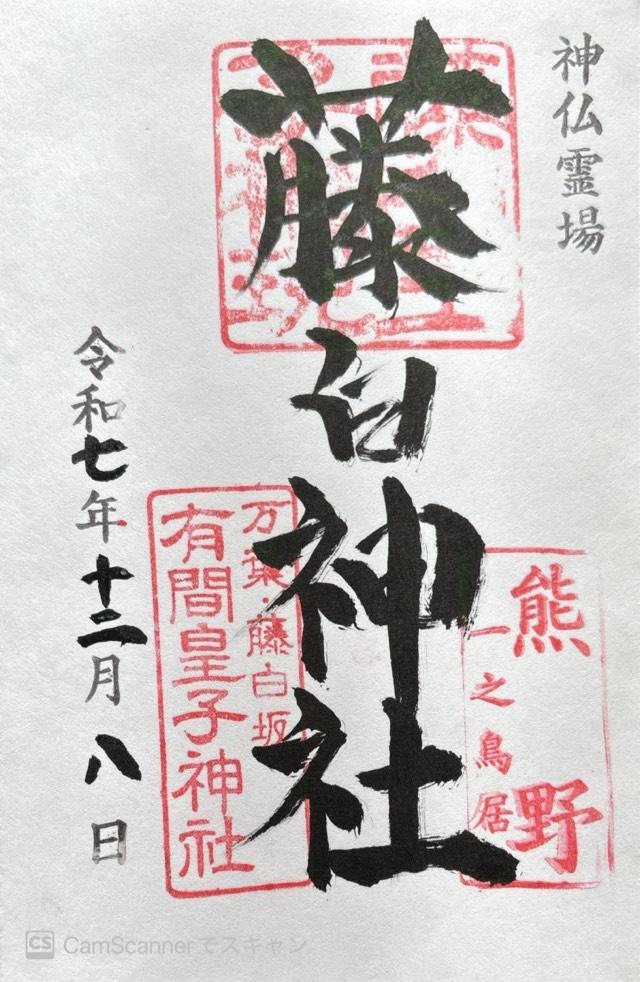 神仏霊場
藤白神社
熊野
一之鳥居
万葉・藤白坂
有間皇子神社
令和七年十二月八日
CS CamScannerでスキャン